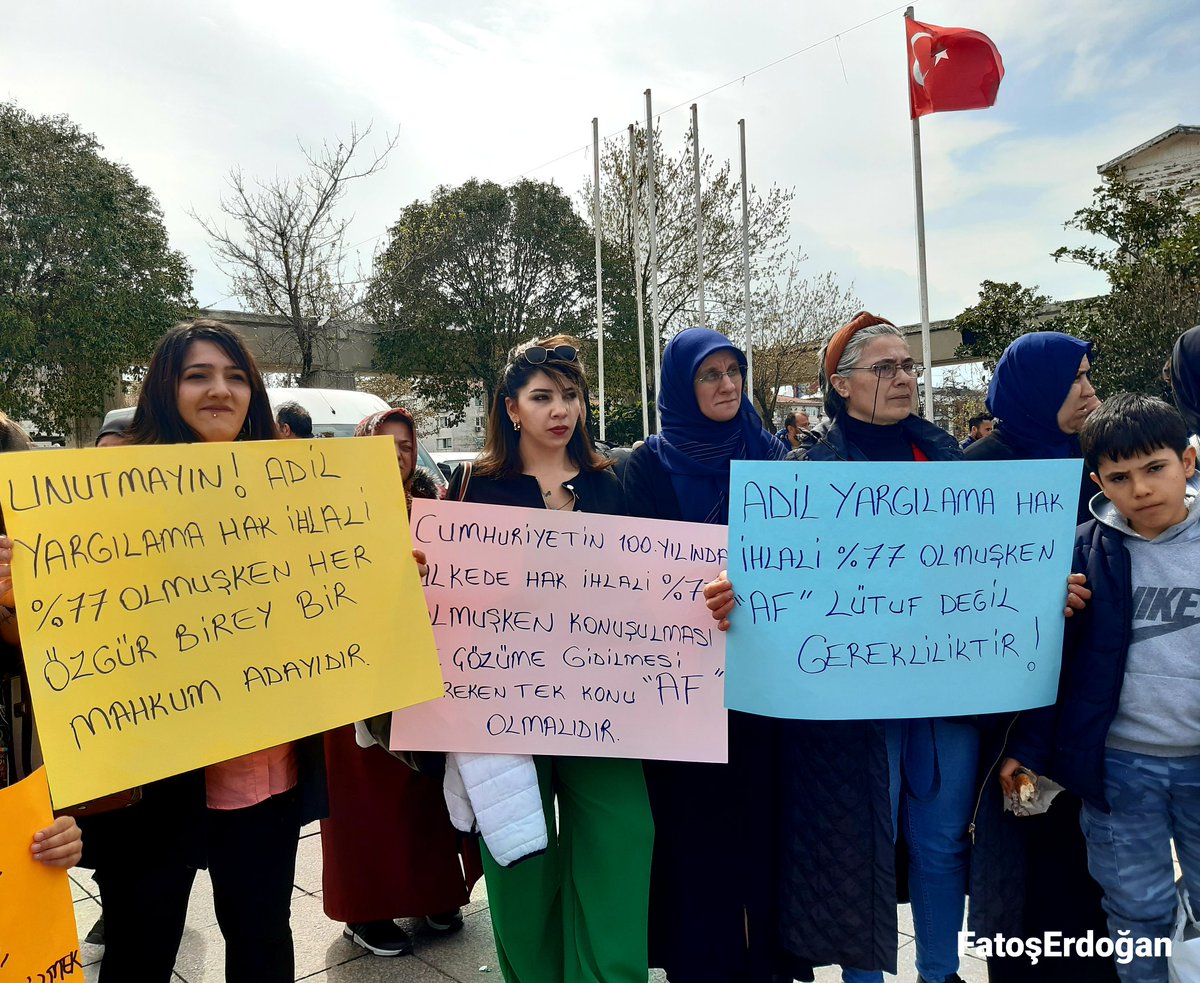 UNUTMAYIN! ADİL
YARGILAMA HAK İHLALİ
%77 OLMUŞKEN HER
ÖZGÜR BİREY BİR
MAHKUM ADAYIDIR.
CUMHURİYETİN 100.YILINDA
ÜLKEDE HAK İHLALİ %7
OLMUŞKEN KONUŞULMASI
ÇÖZÜME GİDİLMESİ
GEREKEN TEK KONU "AF"
OLMALIDIR.
ADİL YARGILAMA HAK
İHLALİ %77 OLMUŞKEN
"AF" LÜTUF DEĞİL
GEREKLİLİKTİR!
NIKE
FatoşErdoğan